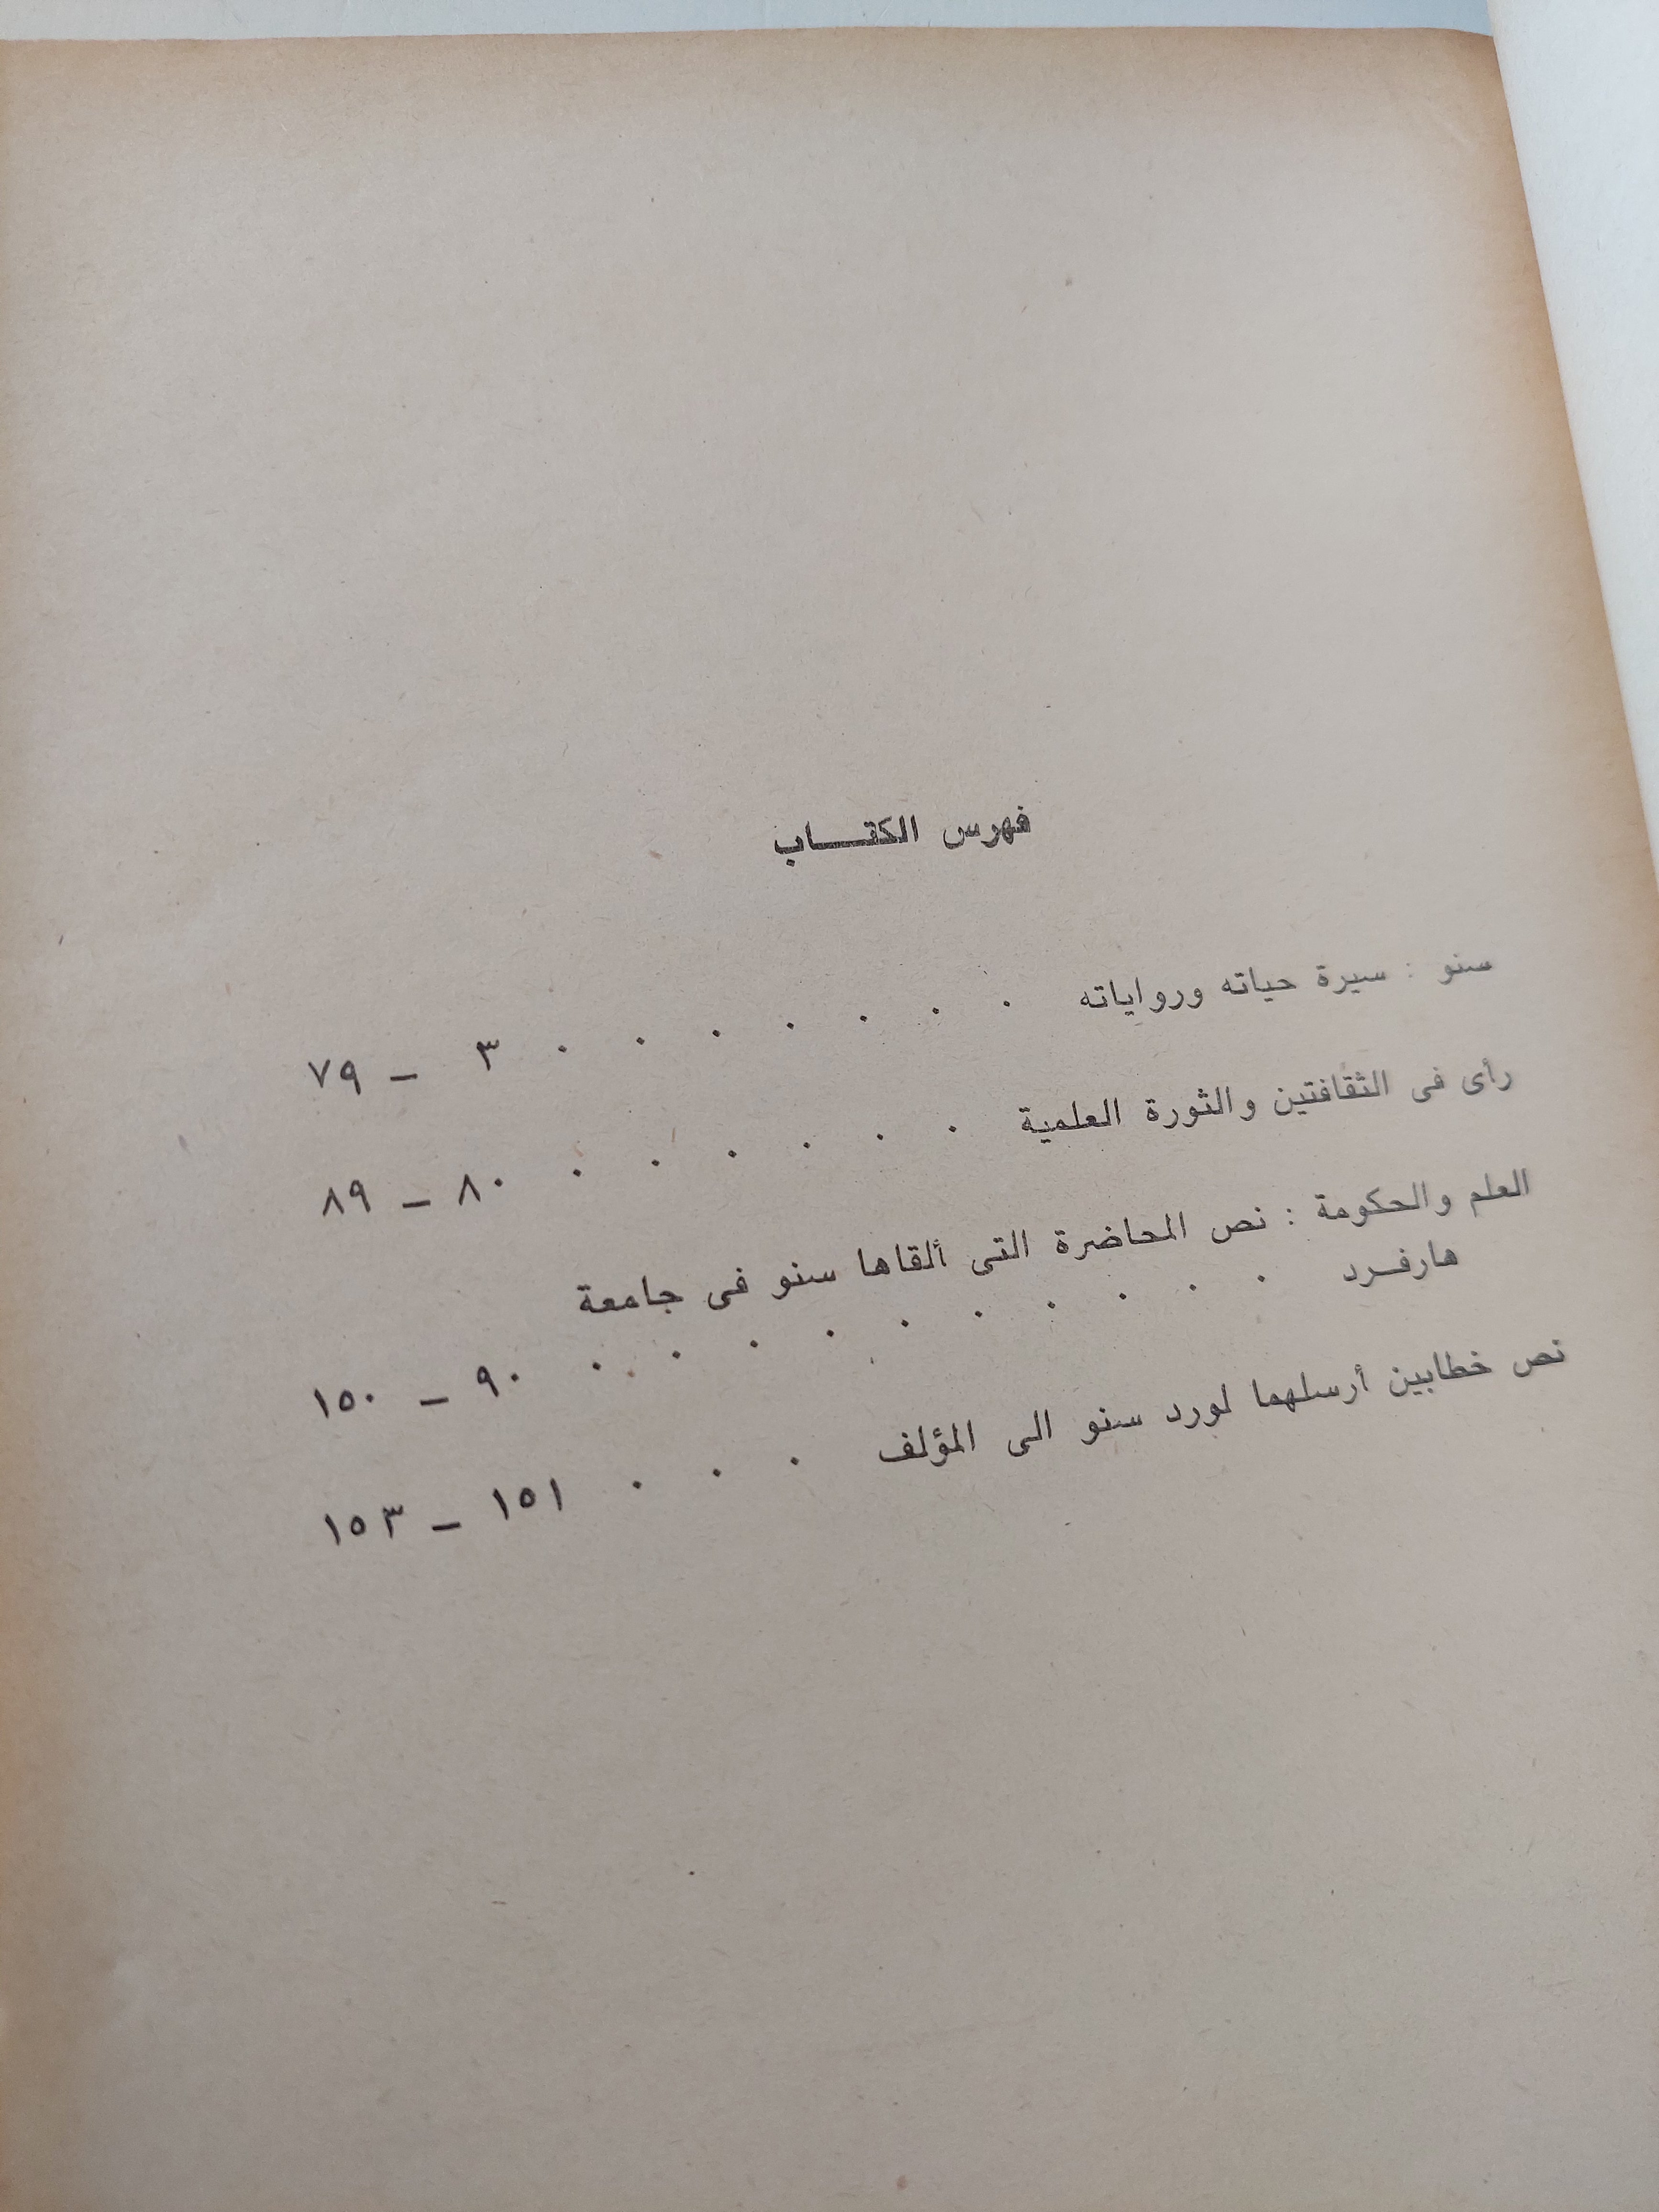 فهرس الكتـــاب
سنو : سيرة حياته ورواياته . . . . . . . ٣ – ٧٩
رأى فى الثقافتين والثورة العلمية . . . . . . ٨٠ – ٨٩
العلم والحكومة : نص المحاضرة التى ألقاها سنو فى جامعة
هارفـرد . . . . . . . . . . ٩٠ – ١٥٠
نص خطابين أرسلهما لورد سنو الى المؤلف . . . ١٥١ – ١٥٣